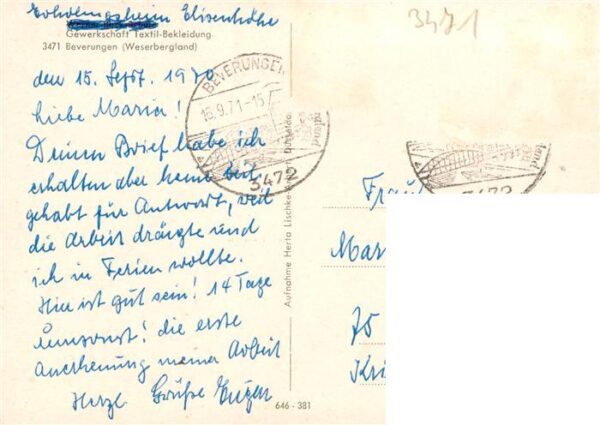 Erholungsheim Elisenhöhe
Gewerkschaft Textil-Bekleidung
3471 Beverungen (Weserbergland)
3471
den 15. Sept. 1970
Liebe Maria!
Deinen Brief habe ich
erhalten aber keine Zeit
gehabt für Antwort, weil
die Arbeit drängte und
ich in Ferien wollte.
Hier ist gut sein! 14 Tage
umsonst! die erste
Anerkennung meiner Arbeit
Herzl. Grüße Eugen
BEVERUNGEN
16.9.71-15
3472
Aufnahme Herta Lischke
646 - 381
3472
Frau
Mar
75
Kri